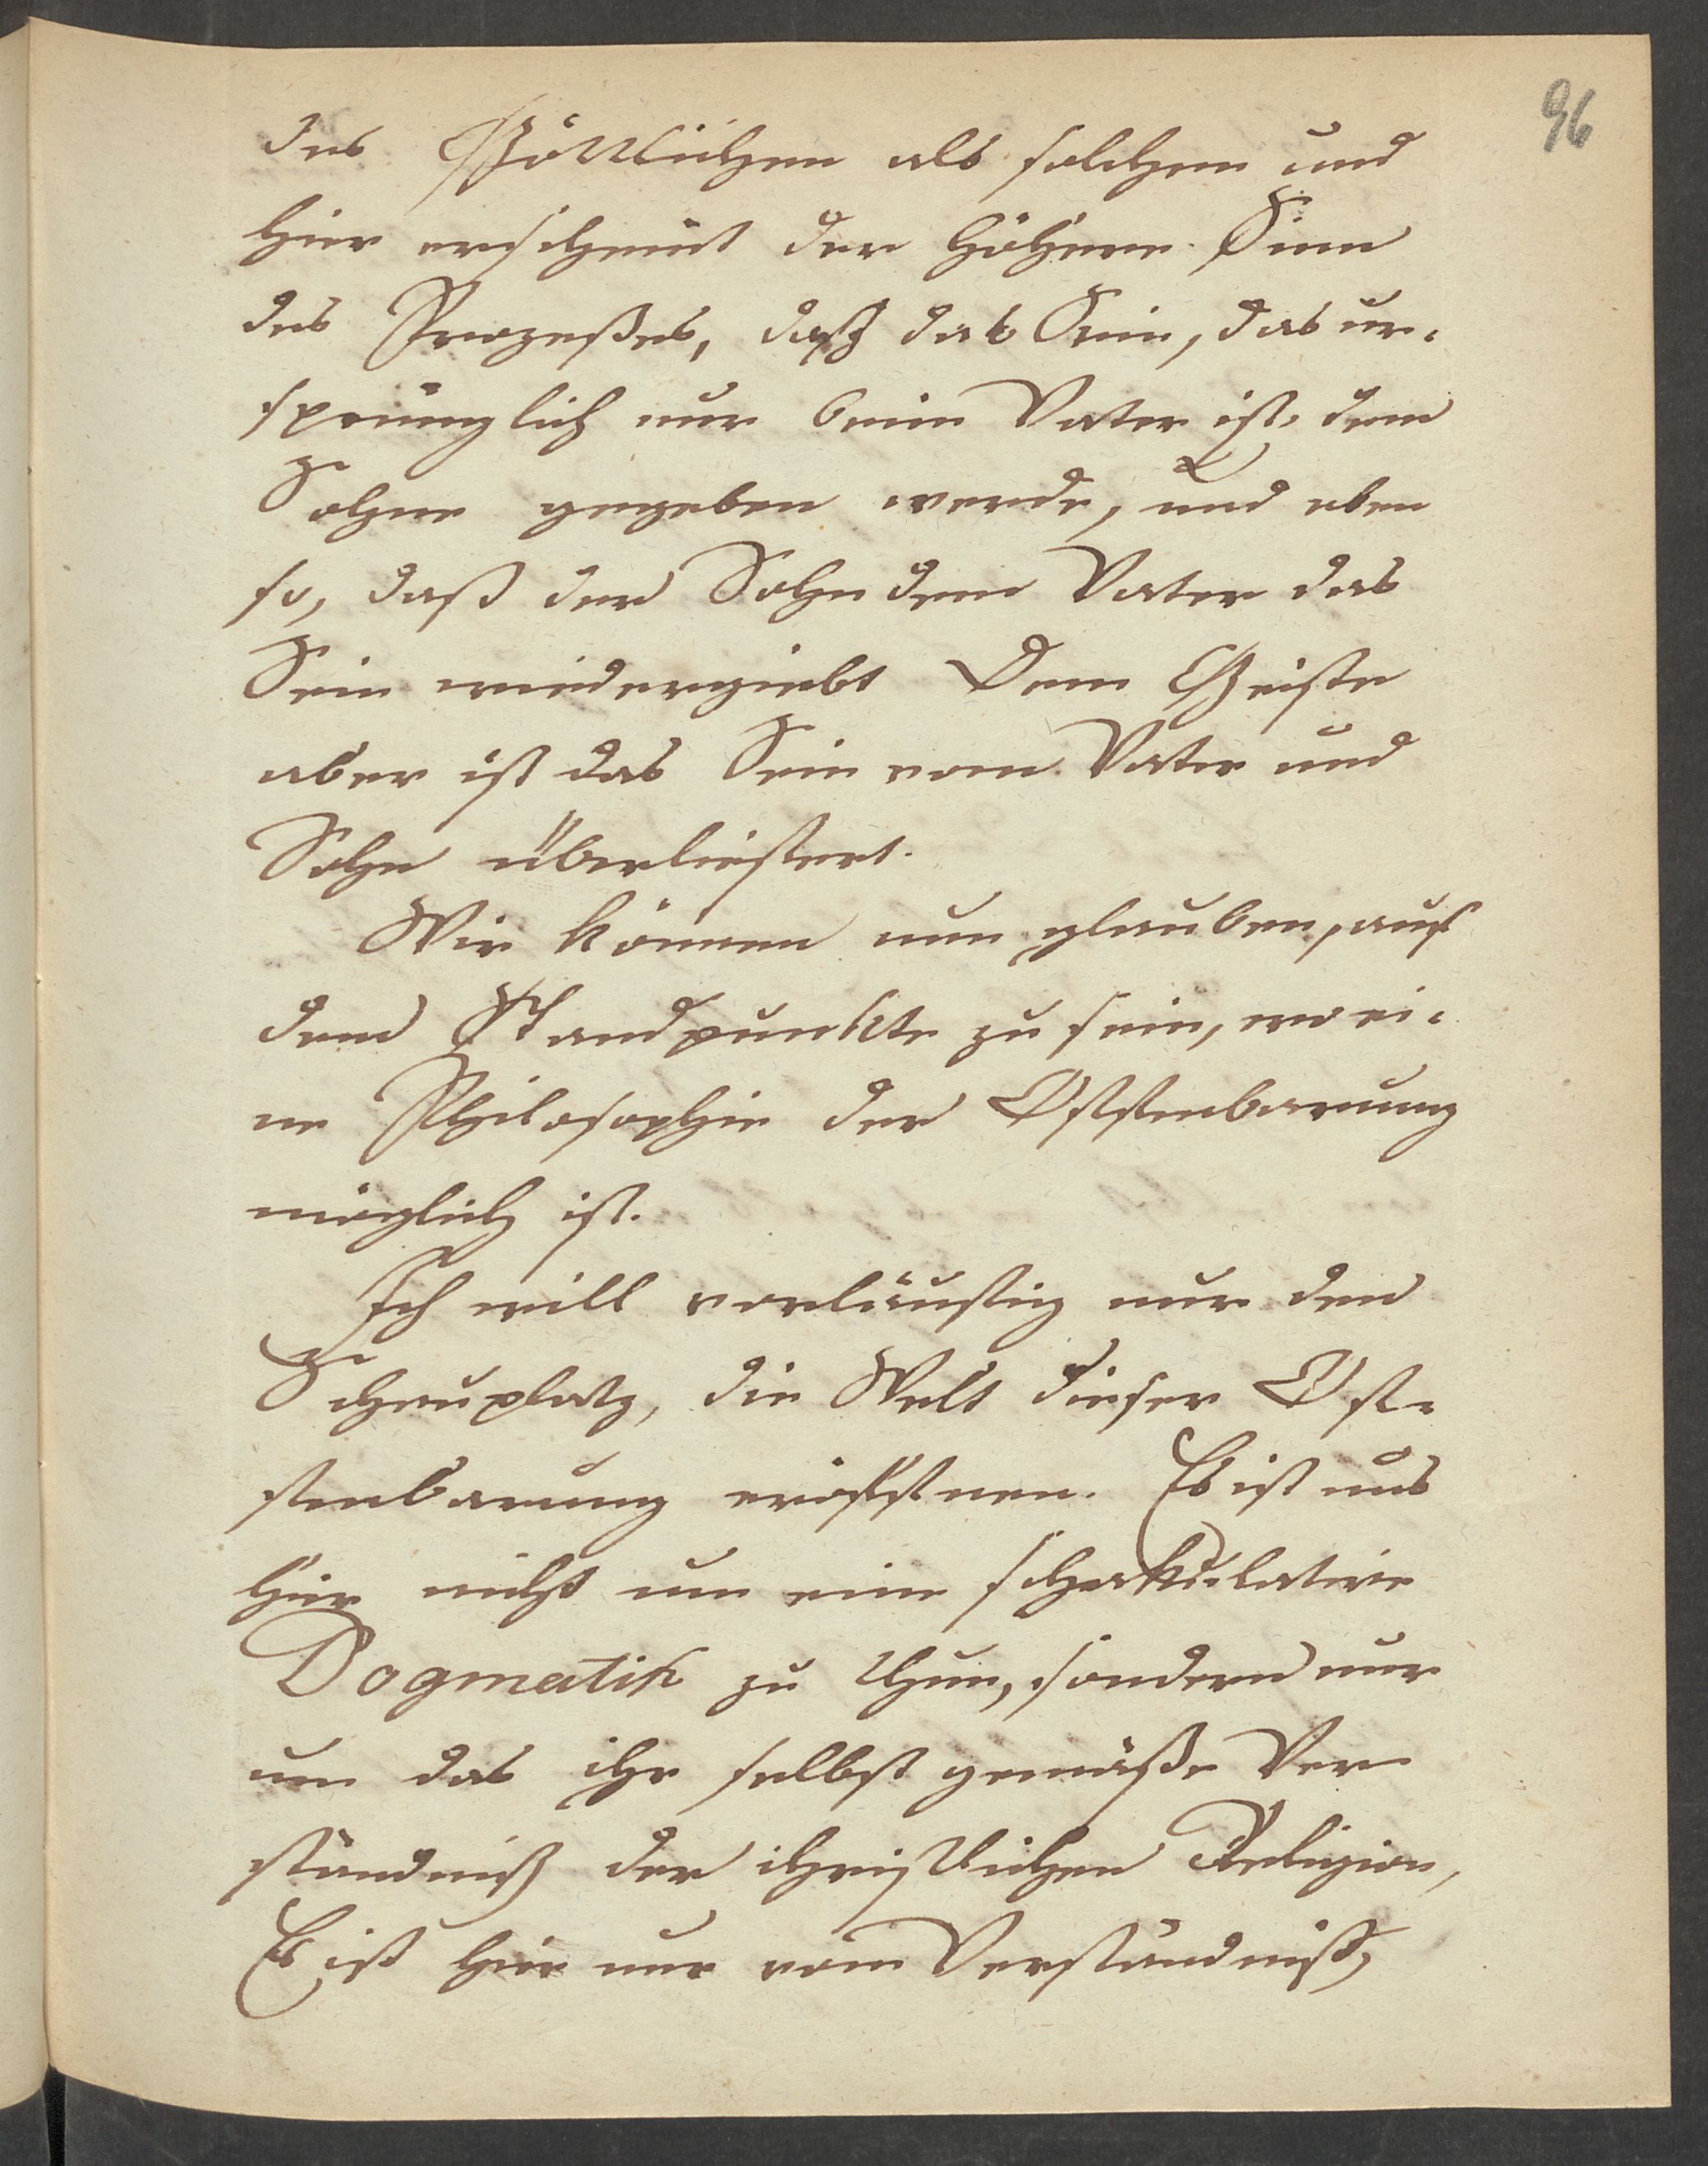 96
des Göttlichen als solchen und
hier erscheint der höhere Sinn
des Prozeßes, daß das Sein, das ur-
sprünglich nur beim Vater ist, dem
Sohne gegeben werde, und eben
so, daß der Sohn dem Vater das
Sein wiedergiebt Dem Geiste
aber ist das Sein vom Vater und
Sohn überliefert.
Wir können nun glauben, auf
dem Standpunkte zu sein, wo ei-
ne Philosophie der Offenbarung
möglich ist.
Ich will vorläufig nur den
Schauplatz, die Welt dieser Of-
fenbarung eröffnen. Es ist uns
hier nicht um eine spekulative
Dogmatik zu thun, sondern nur
um das ihr selbst gemäße Ver
ständniß der christlichen Religion,
Es ist hier nur vom Verständniß,